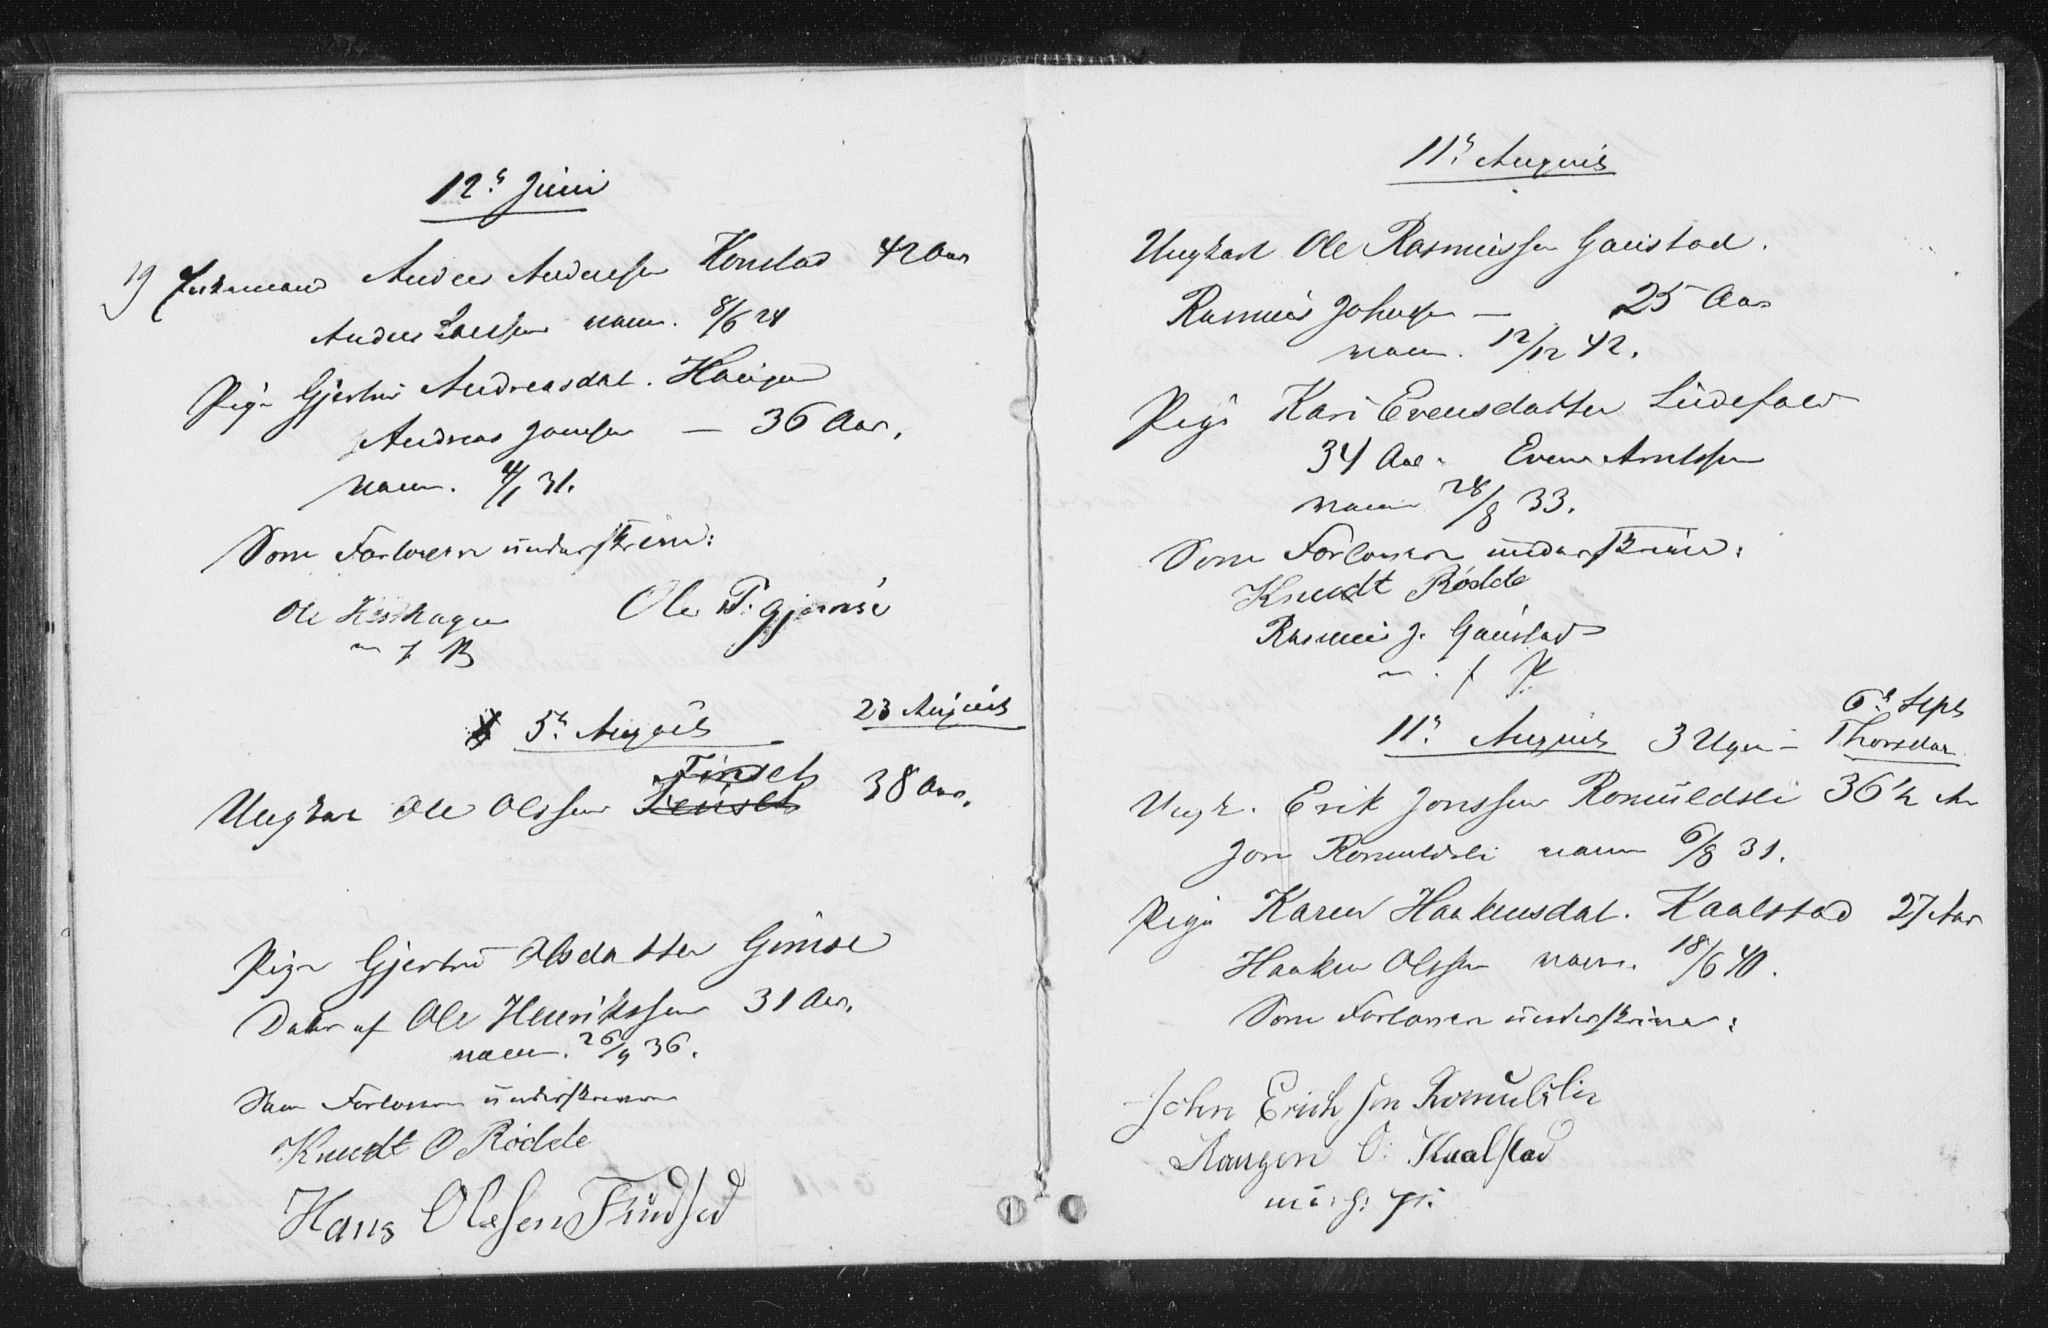 12te Juni
19 Enkemand Anders Andersen Konstad 42 Aar
Anders Larssen vacc. 8/6 24
Pige Gjertru Andreasdat. Haugen
Andreas Jonsen — 36 Aar.
vacc. 4/1 31.
Som Forlovere underskrive:
Ole Ole T. Gjemse
m f P
5te August 23 August
Finset
Ungkar Ole Olssen 38 Aar.
Pige Gjertru Olsdatter Gimse
Datter af Ole Henrikssen 31 Aar.
vacc. 26/9 36.
Som Forlovere underskrive
Knudt O Rødde
Hans Olssen Findsed
11te August
Ungkarl Ole Rasmussen Gaustad.
Rasmus Johnsen — 25 Aar
vacc. 12/12 42.
Pige Kari Evensdatter Lidefald
34 Aar. Even Arntssen
vacc 28/8 33.
Som Forlovere underskrive:
Knudt Rødde
Rasmus J. Gaustad
m . f P
6te Septb
11te August 3 Uger — Thorsdag
Ungk. Erik Jonssen Romuldsli 36 1/2 Ar
Jon Romuldsli vacc 6/8 31.
Pige Karen Haakensdat. Kaalstad 27 Aar
Haaken Olssen vacc. 18/6 40.
Som Forlovere underskrive:
John Erichsen Romulslie
O: Kaalstad